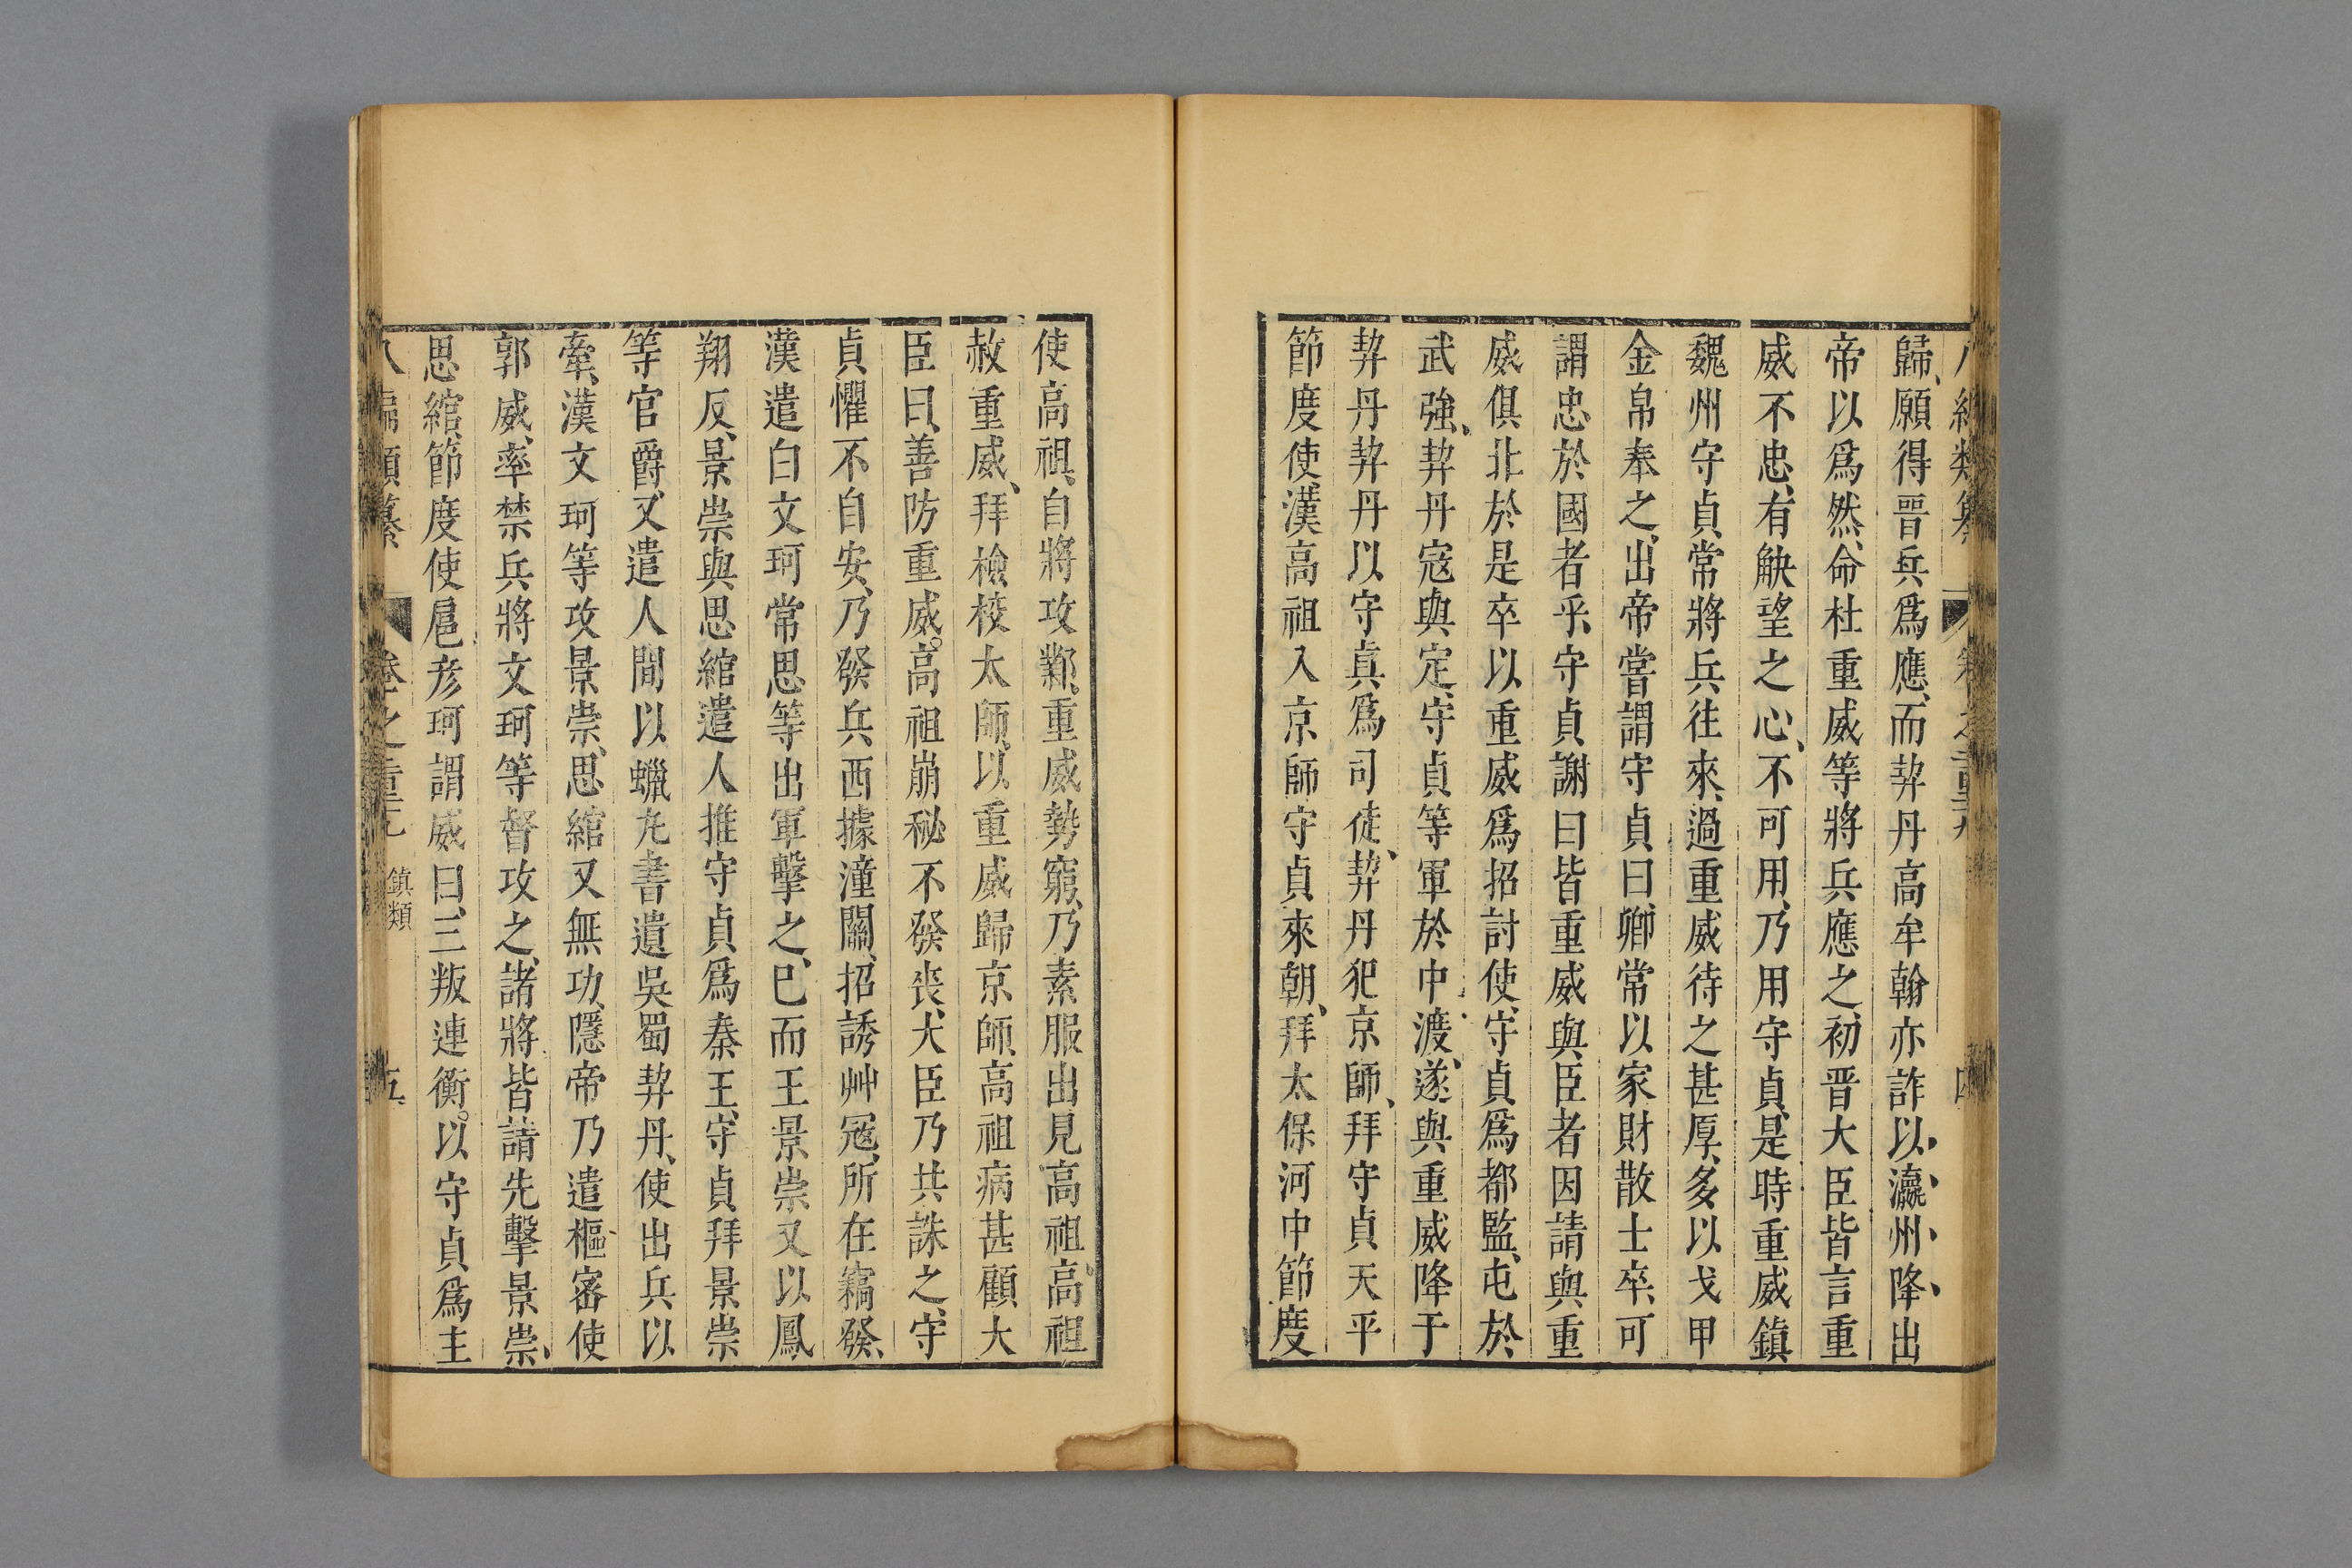 歸、願得晉兵爲應、而契丹高牟翰亦詐以瀛州降、出
帝以爲然、命杜重威等將兵應之、初晉大臣皆言重
威不忠、有觖望之心、不可用、乃用守貞、是時重威鎮
魏州守貞、常將兵往來、過重威待之甚厚、多以戈甲
金帛奉之、出帝嘗謂守貞曰、卿常以家財散士卒、可
謂忠於國者乎、守貞謝曰皆重威與臣者因請與重
威俱北於是卒以重威爲招討使、守貞爲都監、屯於
武強、契丹寇與定、守貞等軍於中渡、遂與重威降于
契丹契丹以守貞爲司徒、契丹犯京師、拜守貞天平
節度使漢高祖入京師守貞來朝、拜太保河中節度
使高祖、自將攻鄴、重威勢窮、乃素服出見高祖、高祖
赦重威、拜檢校太師、以重威歸京師、高祖病甚顧大
臣曰、善防重威。高祖崩秘不發喪、大臣乃共誅之、守
貞懼不自安、乃發兵西據潼關、招誘艸寇、所在竊發、
漢遣白文珂常思等出軍擊之、已而王景崇又以鳳
翔反、景崇與思綰遣人推守貞爲秦王、守貞拜景崇
等官爵、又遣人間以蠟丸書遺吳蜀契丹、使出兵以
牽、漢文珂等攻景崇、思綰又無功、隱帝乃遣樞密使
郭威、率禁兵將文珂等督攻之、諸將皆請先擊景崇、
思綰、節度使扈彥珂謂威曰、三叛連衡。以守貞爲主
八編類纂 卷之 鎮類 五